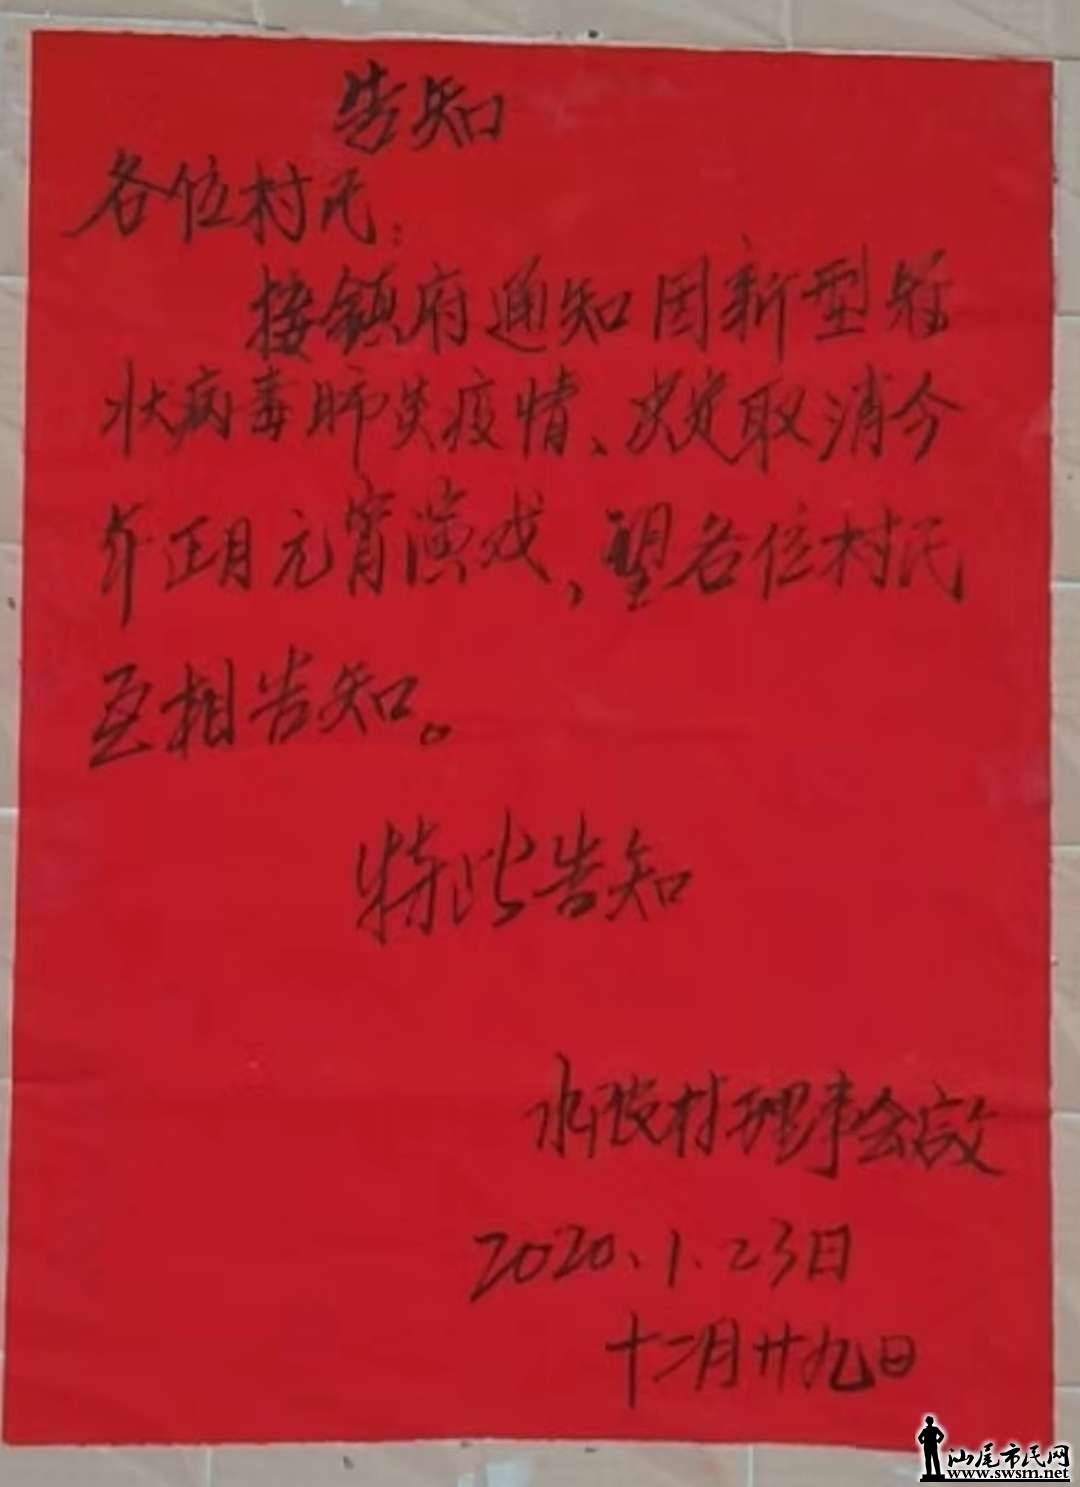 告知
各位村民:
接镇府通知因新型冠
状病毒肺炎疫情、决定取消今
年正月元宵演戏,望各位村民
互相告知。
特此告知
水 村理事会启
2020.1.23日
十二月廿九日
汕尾市民网
www.swsm.net